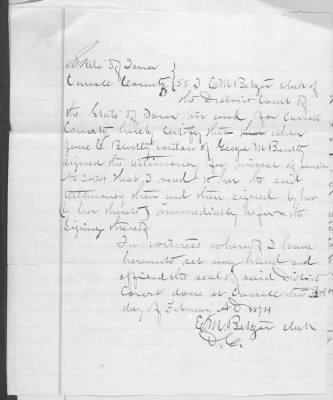 State of Iowa }
Carroll County } SS, I E M Betzer clerk of
the District Court of
the State of Iowa in and for Carroll
County hereby certify that when
Jane E widow of George M
signed the testimony for increase of pension
No 2424 that I read to her the said
testimony then and there signed by her
by her thereto immediately before the
signing thereof
In witness whereof I have
hereunto set my hand and
affixed the seal of said District
Court done at Carroll this
day of February A D 1874
E M Betzer clerk
D. C.